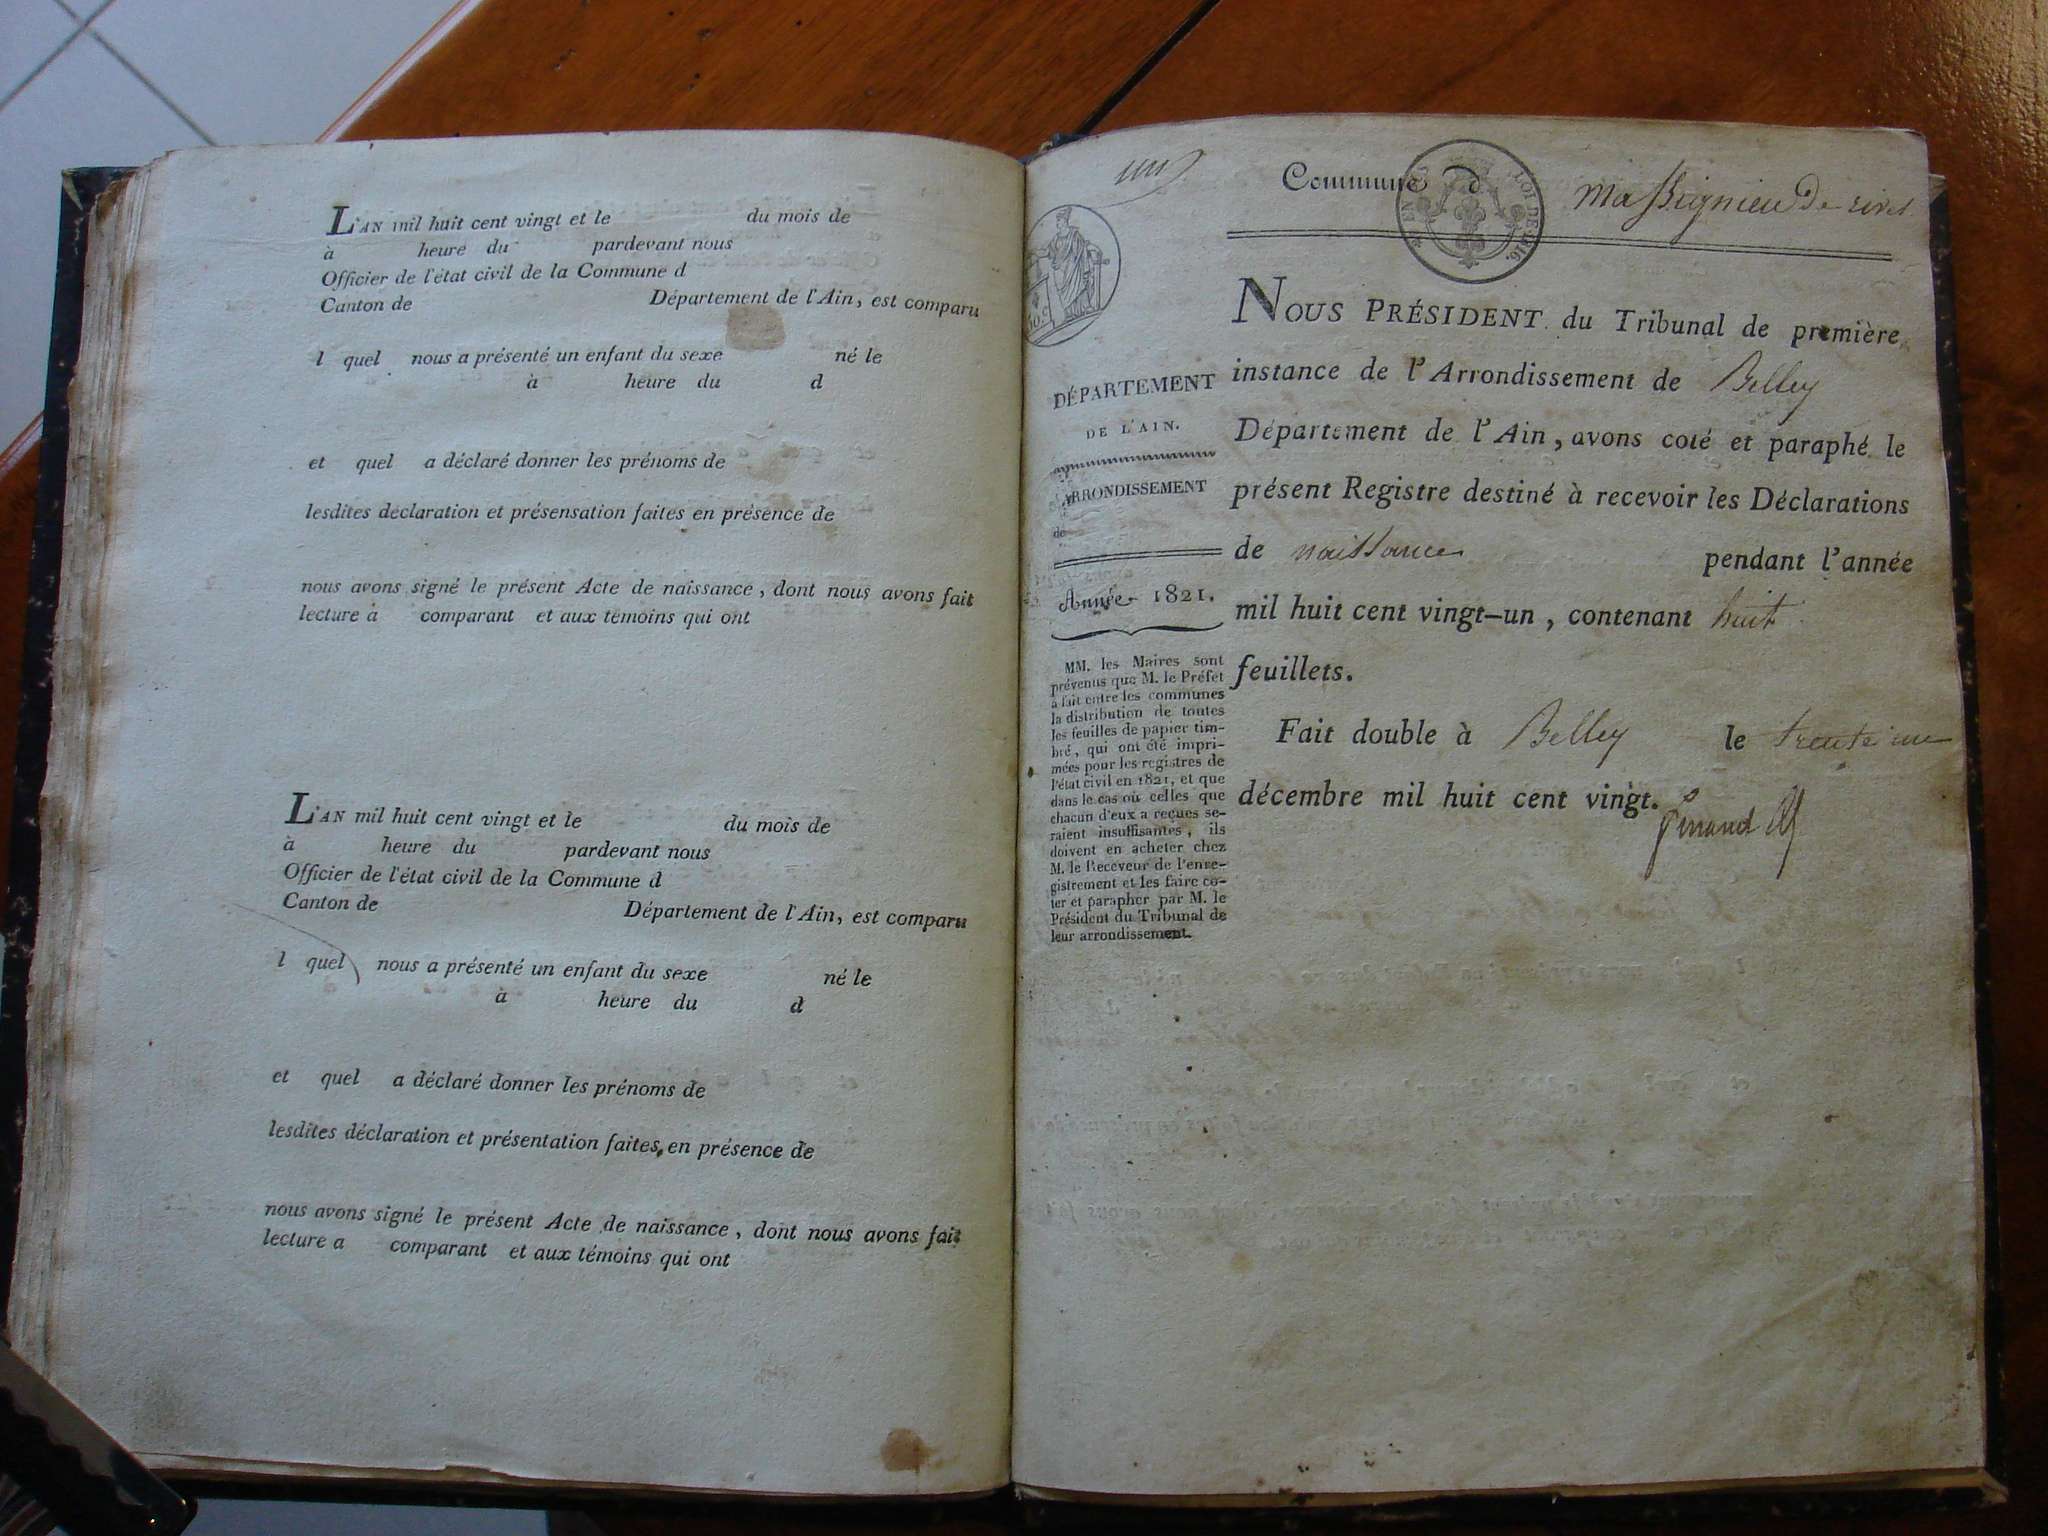 L'AN mil huit cent vingt et le du mois de
à heure du pardevant nous
Officier de l'état civil de la Commune d
Canton de Département de l'Ain, est comparu
l quel nous a présenté un enfant du sexe né le
à heure du d
et quel a déclaré donner les prénoms de
lesdites déclaration et présensation faites en présence de
nous avons signé le présent Acte de naissance, dont nous avons fait
lecture à comparant et aux témoins qui ont
L'AN mil huit cent vingt et le du mois de
à heure du pardevant nous
Officier de l'état civil de la Commune d
Canton de Département de l'Ain, est comparu
l quel nous a présenté un enfant du sexe né le
à heure du d
et quel a déclaré donner les prénoms de
lesdites déclaration et présentation faites, en présence de
nous avons signé le présent Acte de naissance, dont nous avons fait
lecture a comparant et aux témoins qui ont
Commune d Massignieu De rives
LOI DE 1816.
DÉPARTEMENT
DE L'AIN.
ARRONDISSEMENT
de
Année 1821.
MM. les Maires sont
prévenus que M. le Préfet
a fait entre les communes
la distribution de toutes
les feuilles de papier tim-
bré, qui ont été impri-
mées pour les registres de
l'état civil en 1821, et que
dans le cas où celles que
chacun d'eux a reçues se-
raient insuffisantes, ils
doivent en acheter chez
M. le Receveur de l'enre-
gistrement et les faire co-
ter et parapher par M. le
Président du Tribunal de
leur arrondissement.
NOUS PRÉSIDENT du Tribunal de première
instance de l'Arrondissement de Belley
Département de l'Ain, avons coté et paraphé le
présent Registre destiné à recevoir les Déclarations
de naissance pendant l'année
mil huit cent vingt-un, contenant huit
feuillets.
Fait double à Belley le trente un
décembre mil huit cent vingt.